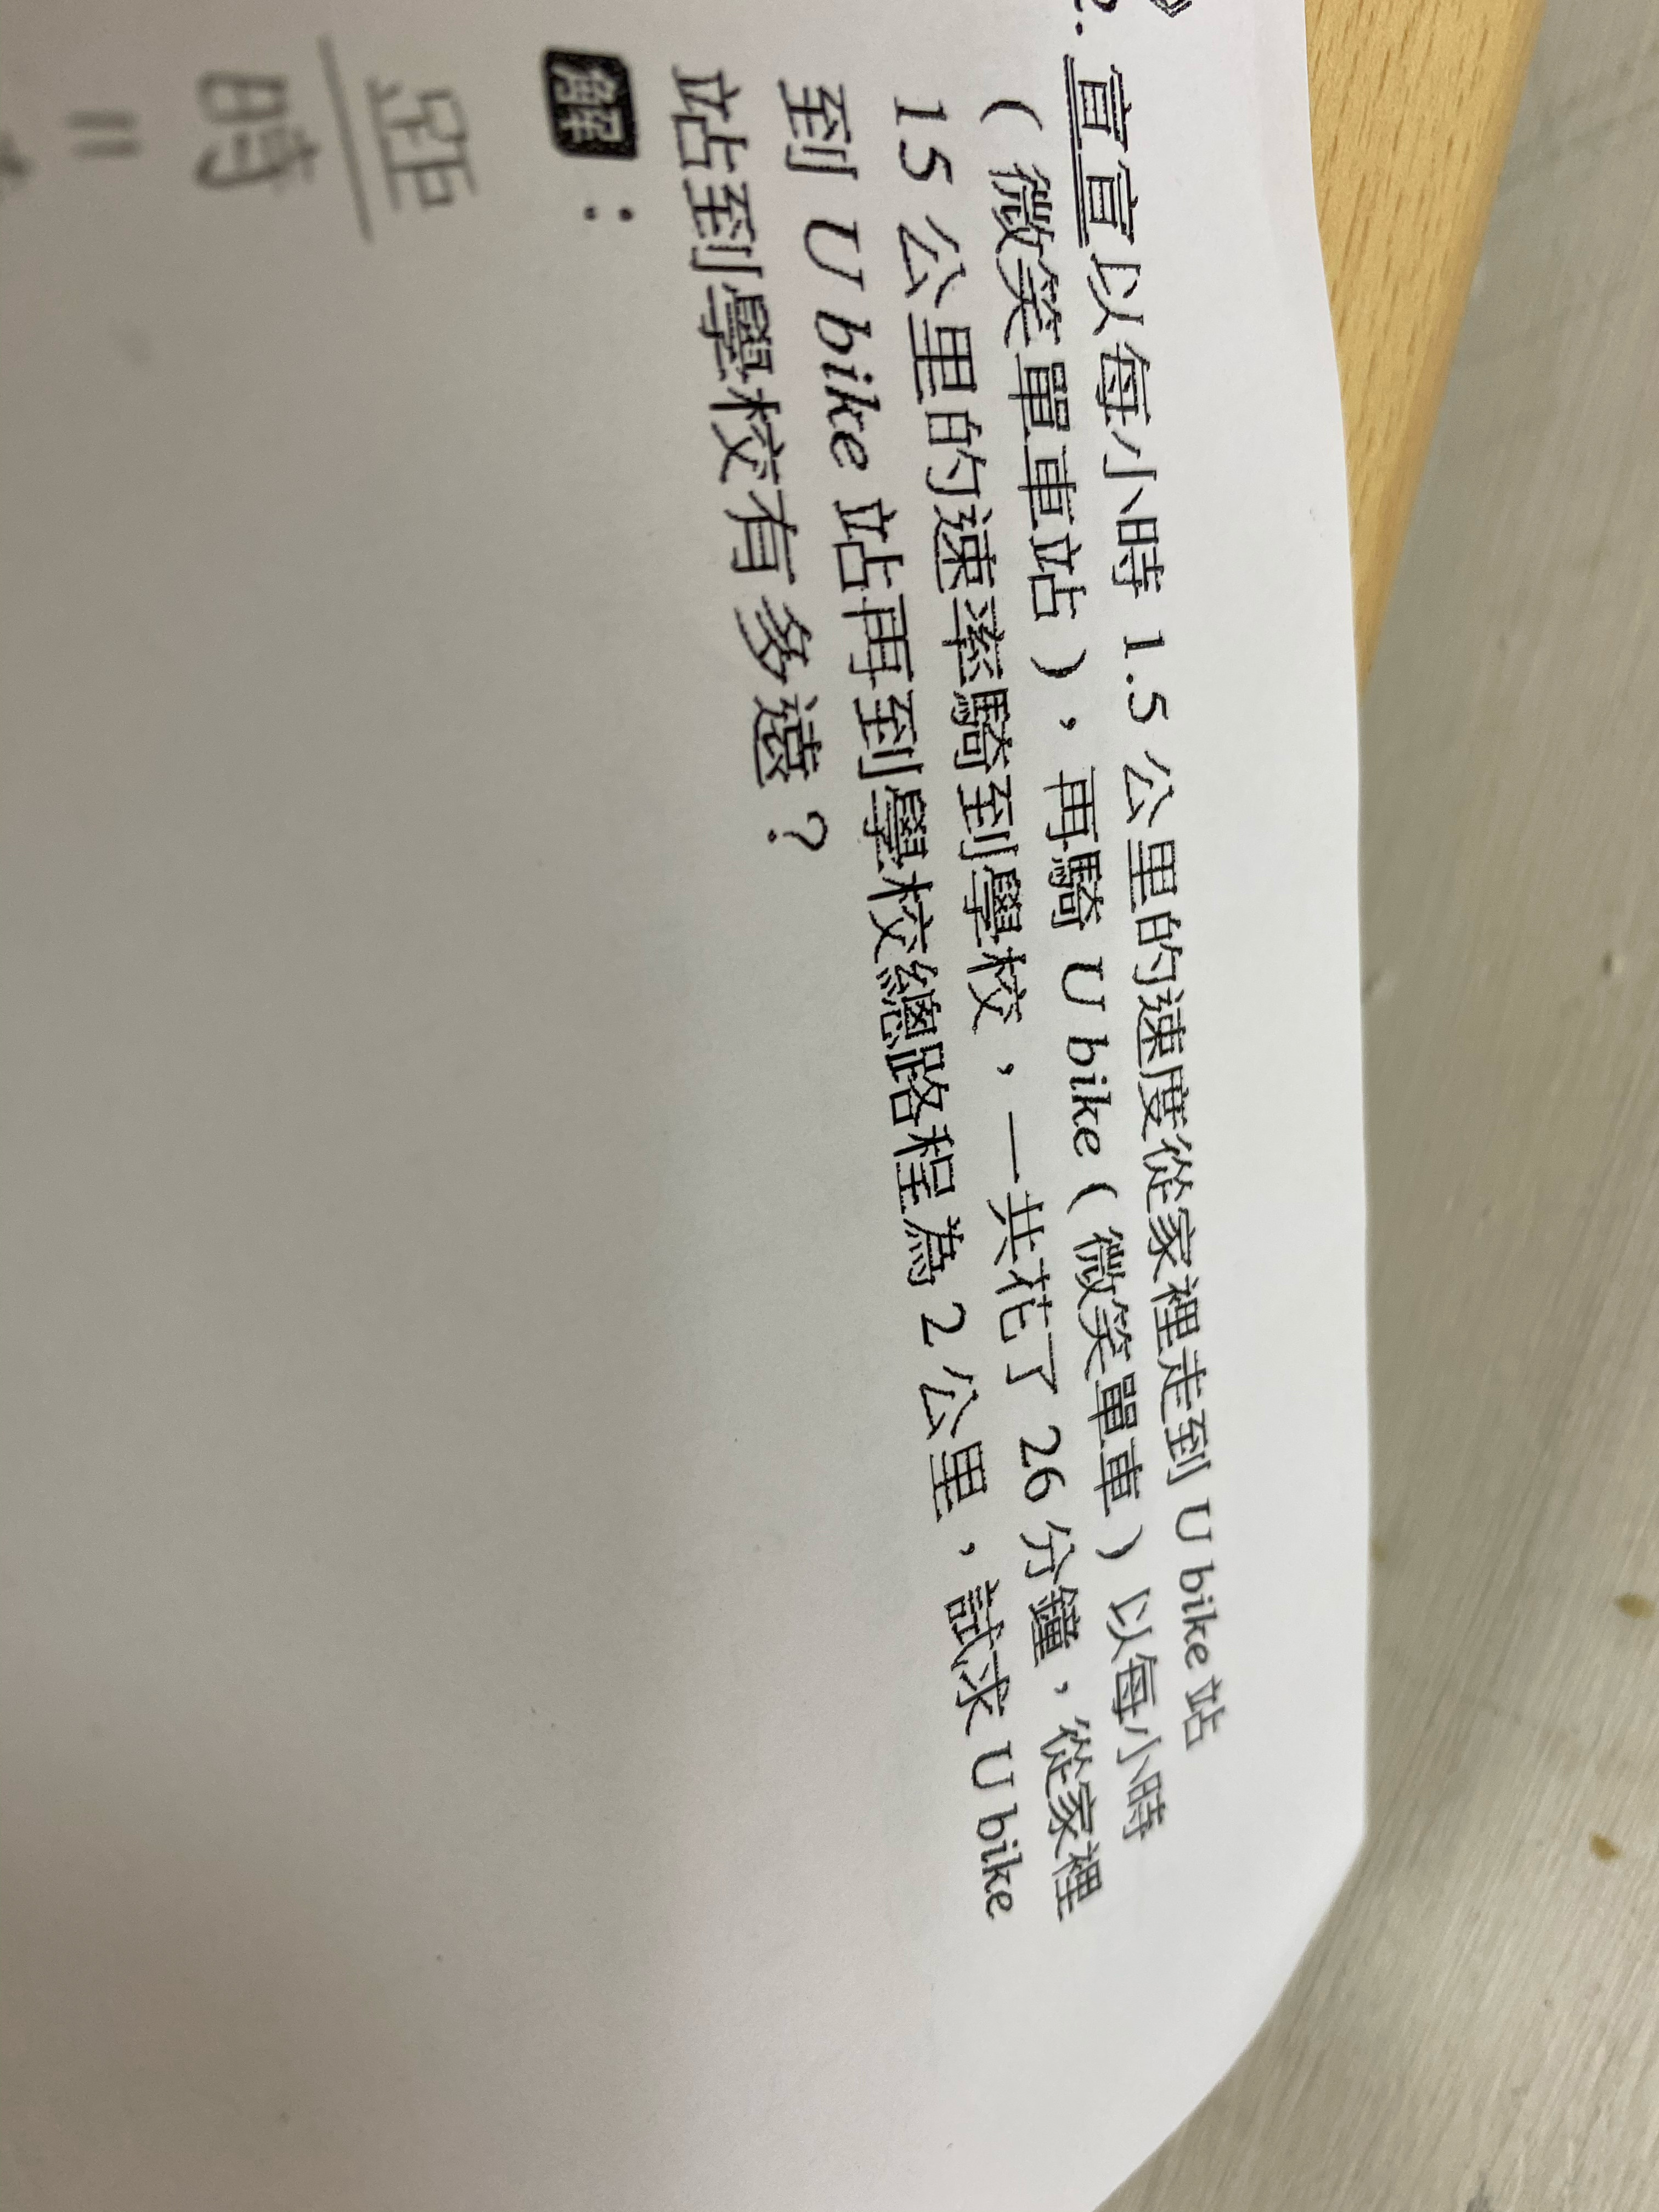 2. 宣宣以每小時 1.5 公里的速度從家裡走到 U bike 站
(微笑單車站),再騎 U bike (微笑單車)以每小時
15 公里的速率騎到學校,一共花了 26 分鐘,從家裡
到 U bike 站再到學校總路程為 2 公里,試求 U bike
站到學校有多遠?
解:
距
時
=